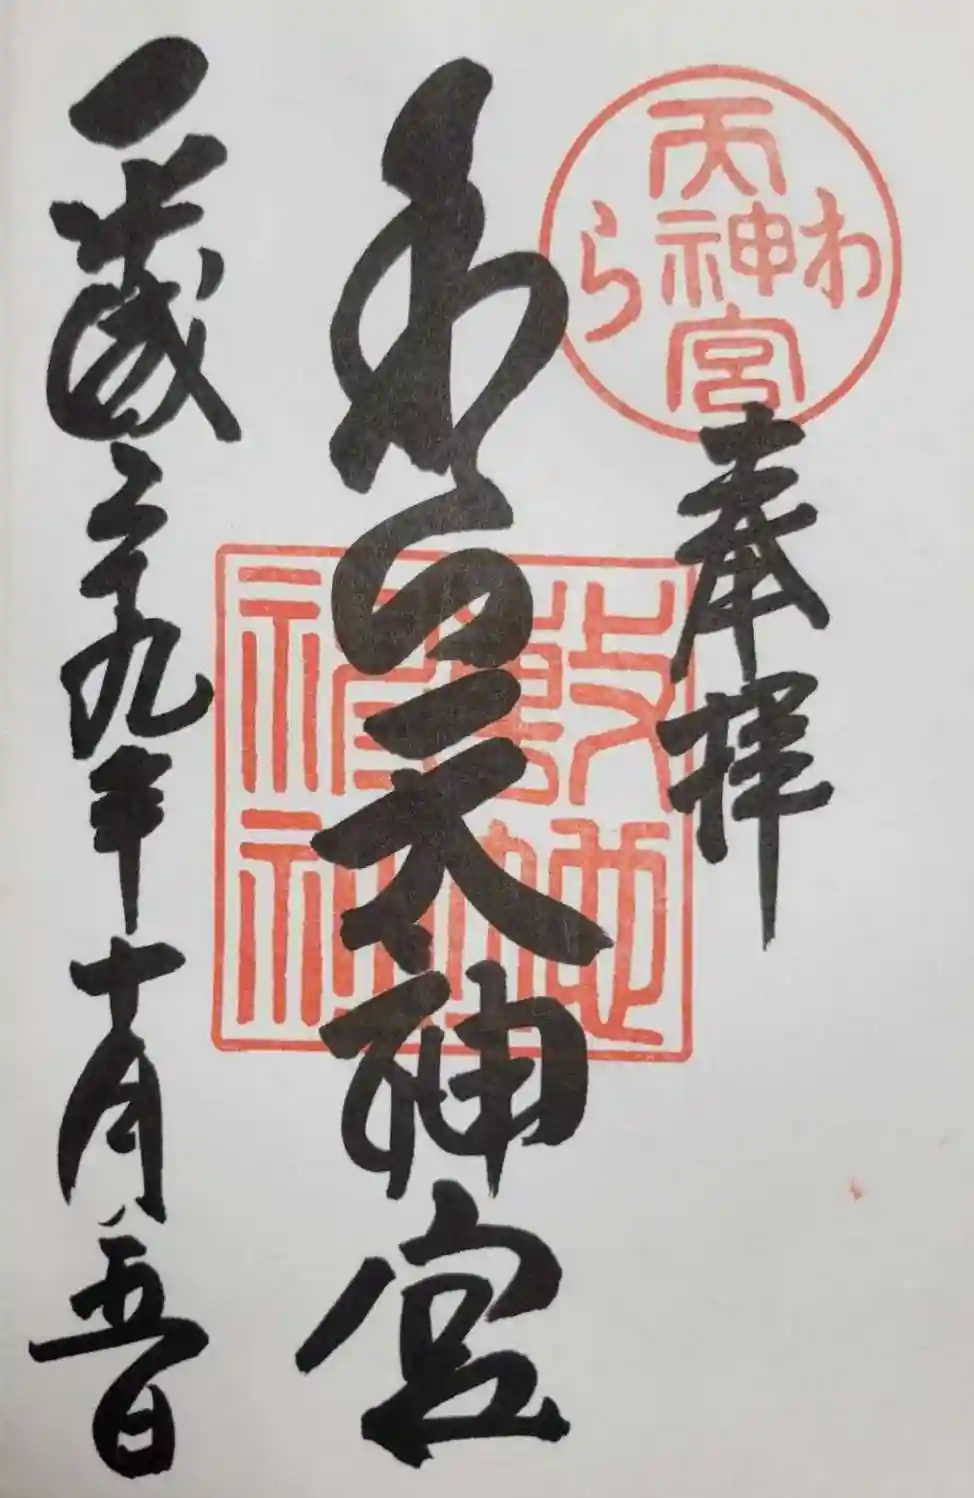 奉拝
わ
天神宮
ら
わら天神宮
敷地
神社
平成二十九年十月五日